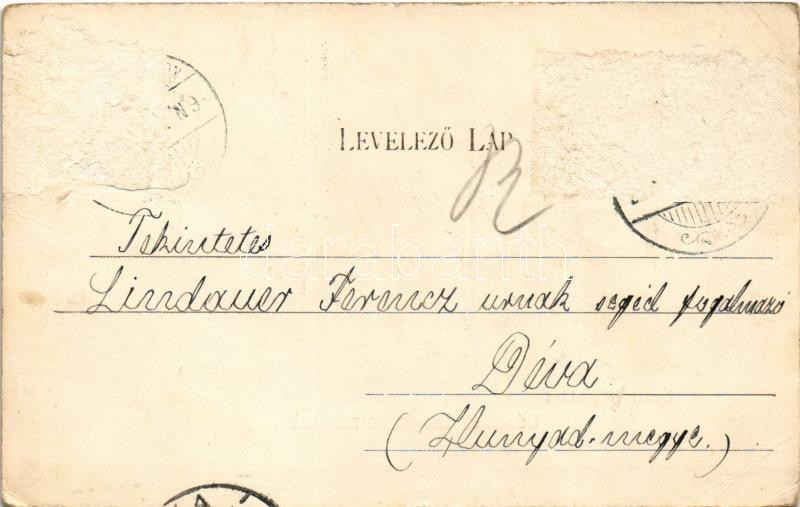 LEVELEZŐ LAP
Tekintetes
Lindauer Ferencz urnak segéd fogalmazó
Déva
(Hunyad-megye.)